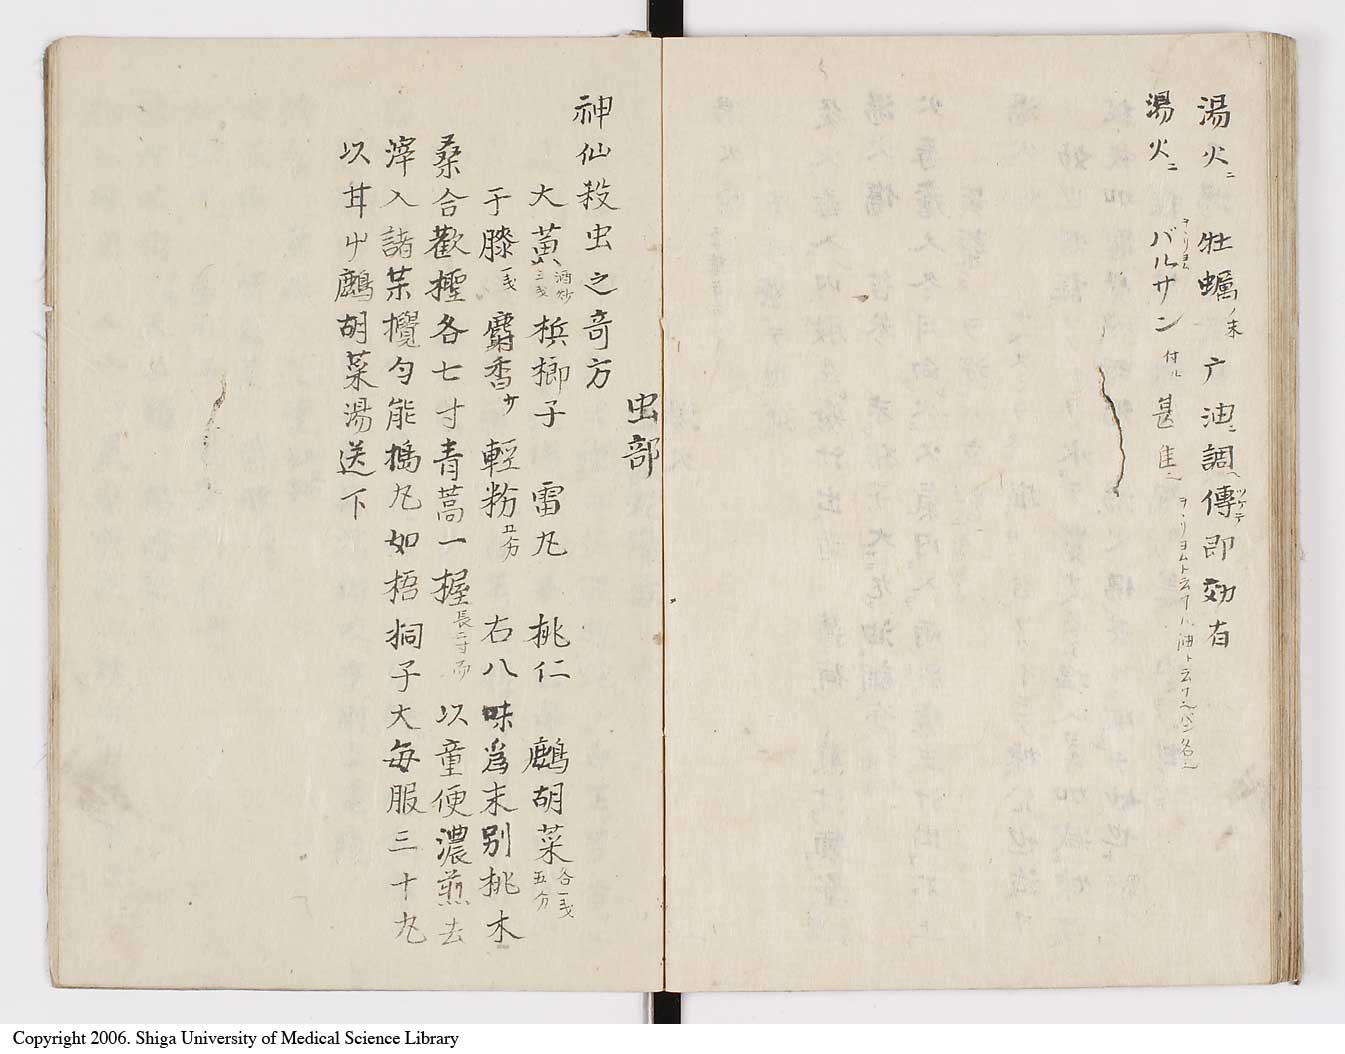 湯火ニ 牡蠣ノ末 广油ニ調ヘ傳ツケテ即効有
湯火ニ バルサン 付ル 甚佳
虫部
神仙殺虫之奇方
大黄酒炒三戋 梹榔子 雷丸 桃仁 鷓胡菜各一戋五分
于膝一戋 麝香サ 輕粉五分 右八味為末別桃木
桑合歡檉各七寸青蒿一握長二寸而 以童便濃煎去
滓入諸茉攪匀能搗丸如梧桐子大毎服三十丸
以甘屮鷓胡菜湯送下
Copyright 2006. Shiga University of Medical Science Library